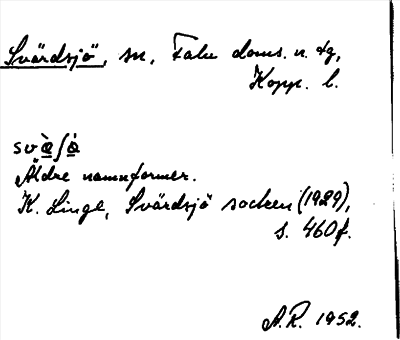 Svärdsjö, sn, Falu doms. n. tg,
Kopp. l.
svæ̀ʃö̀
Äldre namnformer.
K. Linge, Svärdsjö socken (1929),
s. 460f.
A.R. 1952.